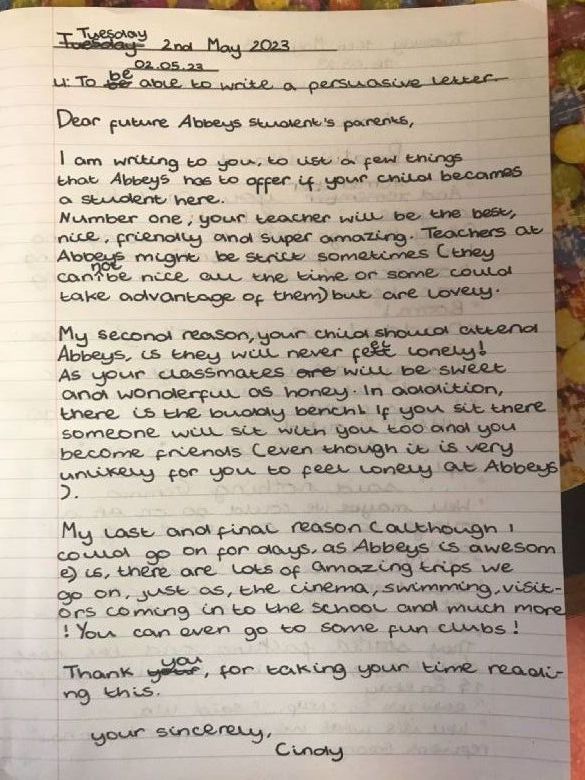 Tuesday
Tuesday 2nd May 2023
02.05.23
be
LI: To be able to write a persuasive letter
Dear future Abbeys student's parents,
I am writing to you, to list a few things
that Abbeys has to offer if your child becomes
a student here.
Number one, your teacher will be the best,
nice, friendly and super amazing. Teachers at
Abbeys might be strict sometimes (they
not
can be nice all the time or some could
take advantage of them) but are lovely.
My second reason, your child should attend
Abbeys, is they will never feel lonely!
As your classmates are will be sweet
and wonderful as honey. In addition,
there is the buddy bench! If you sit there
someone will sit with you too and you
become friends (even though it is very
unlikely for you to feel lonely at Abbeys
).
My last and final reason (although I
could go on for days, as Abbeys is awesom
e) is, there are lots of amazing trips we
go on, just as, the cinema, swimming, visit-
ors coming in to the school and much more
! You can even go to some fun clubs!
you
Thank your, for taking your time readi-
ng this.
your sincerely,
Cindy